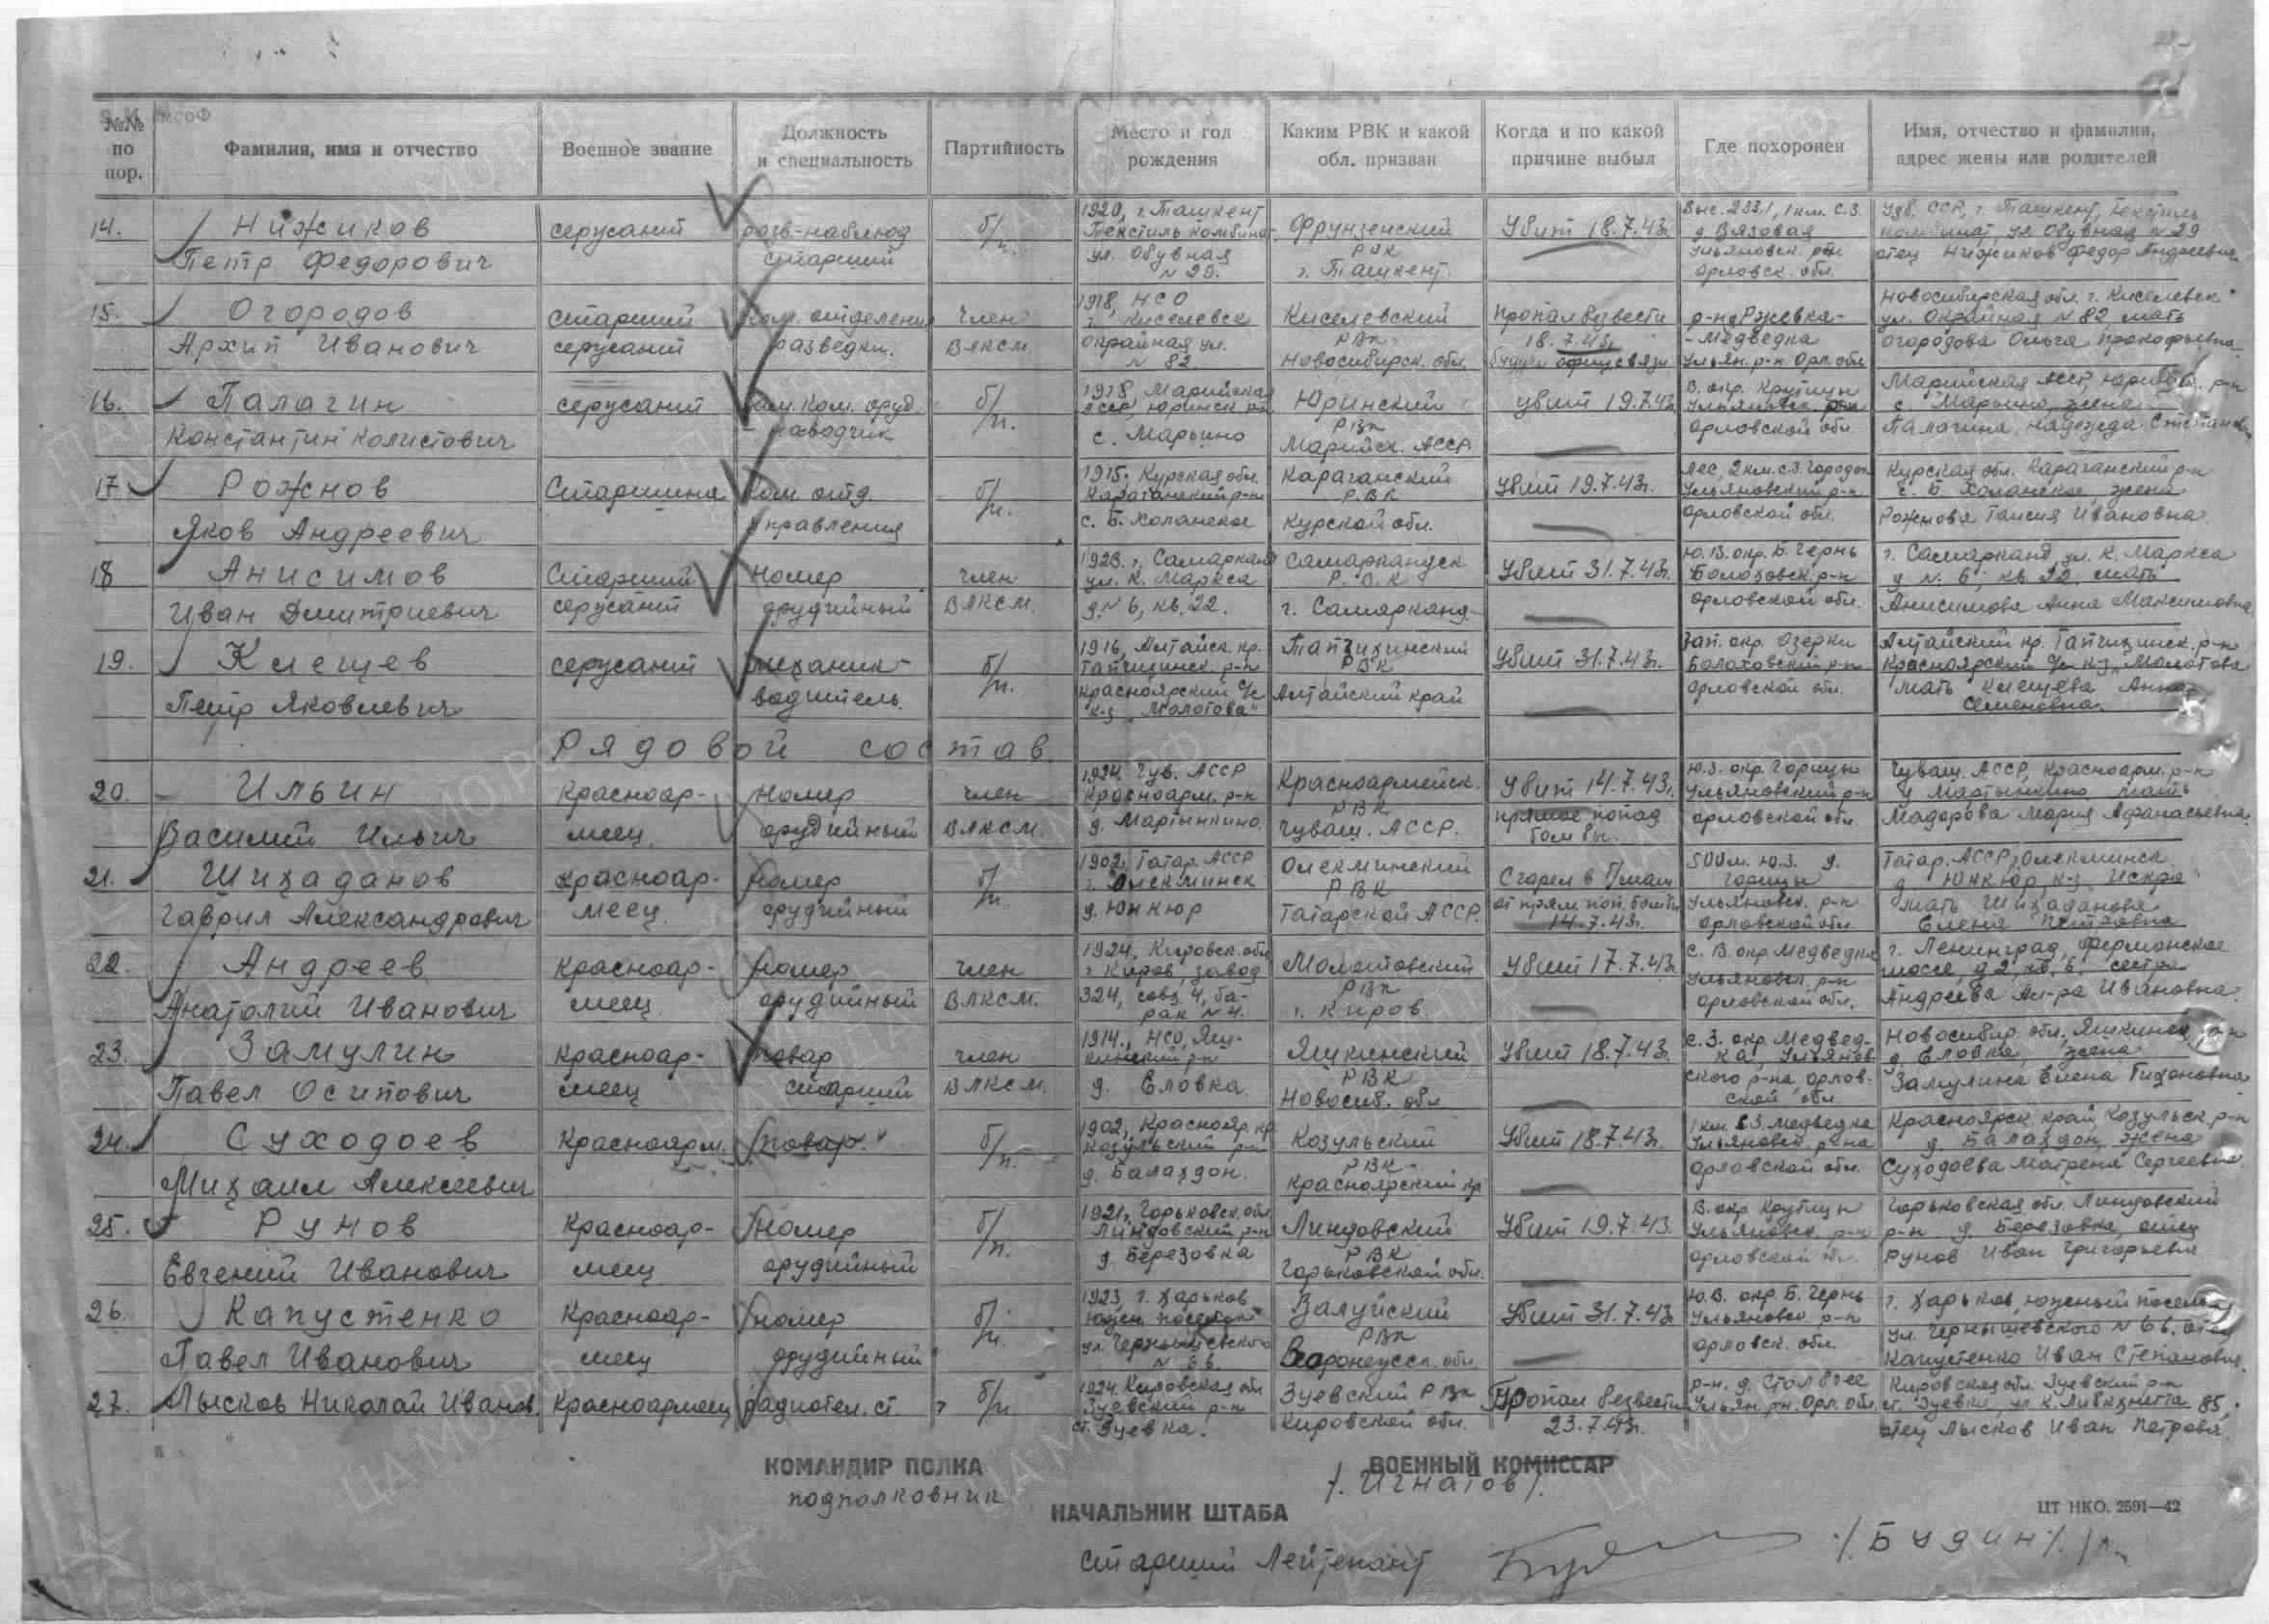 №№ по пор.
Фамилия, имя и отчество
Военное звание
Должность и специальность
Партийность
Место и год рождения
Каким РВК и какой обл. призван
Когда и по какой причине выбыл
Где похоронен
Имя, отчество и фамилия, адрес жены или родителей
14. Нижиков Петр Федорович
сержант
разв.-наблюд старший
б/п.
1920, г. Ташкент Текстиль комбинат ул. Обувная N 29.
Фрунзенский РВК г. Ташкент
Убит 18.7.43г.
Выс. 233,1, 1 км. С.З. д. Вязовая Ульяновск. р-н Орловск. обл.
Узб. ССР, г. Ташкент, Текстиль комбинат ул Обувная N 29 отец Нижиков Федор Андреевич
15. Огородов Архип Иванович
старший сержант
ком. отделения разведки.
член ВЛКСМ.
1918, НСО г. Киселевск Окрайная ул. N 82.
Киселевский РВК Новосибирск. обл.
Пропал безвести 18.7.43г. будучи офиц связи
р-н д Ржевка-Медведка Ульян. р-н Орл. обл
Новосибирская обл. г. Киселевск ул. Окрайная N 82, мать Огородова Ольга Прокофьевна
16. Палагин Константин Колистович
сержант
зам. ком. оруд. - наводчик
б/п.
1918, Марийская АССР, Юринск рн с. Марьино
Юринский РВК Марийск. АССР
убит 19.7.43г
В. окр. Крутицы Ульяновск. рн Орловской обл
Марийская АССР, Юринск. р-н с. Марьино, жена Палагина Надежда Степанов
17 Рожнов Яков Андреевич
Старшина
Ком. отд. управления
б/п.
1915г. Курская обл. Караганский р-н с. Б. Холанское
Караганский РВК Курской обл.
Убит 19.7.43г.
Лес, 2 км. С.З. Городок Ульяновский р-н Орловской обл.
Курская обл. Караганский р-н с. Б. Холанское, жена Рожнова Таисия Ивановна
18 Анисимов Иван Дмитриевич
Старший сержант
Номер орудийный
член ВЛКСМ.
1923, г. Самарканд ул. К. Маркса д. N 6, кв. 22.
Самаркандск Р.В.К г. Самарканд
Убит 31.7.43г.
Ю.В. окр. Б. Чернь Болховск р-н Орловской обл.
г. Самарканд ул. К. Маркса д N. 6, кв. 22 мать Анисимова Анна Максимовна
19. Клещев Петр Яковлевич
сержант
механик-водитель.
б/п.
1916, Алтайск. кр. Тапчихинск. р-н Красноярский с/с к-з "Молотова"
Тапчихинский РВК Алтайский край
Убит 31.7.43г.
Зап. окр. Озерки Болховский р-н Орловской обл.
Алтайский кр. Тапчихинск. р-н Красноярский с/с к-з Молотова мать Клещева Анна Семеновна.
Рядовой состав
20. Ильин Василий Ильич
Красноармеец
Номер орудийный
член ВЛКСМ.
1924 Чув. АССР Красноарм. р-н д. Мартынкино.
Красноармейск. РВК Чуваш. АССР.
Убит 14.7.43г. прямое попад бомбы.
Ю.З. окр. Горицы Ульяновский р-н Орловской обл.
Чуваш. АССР, Красноарм. р-н д Мартынкино мать Мадорова Мария Афанасьевна.
21. Шихаданов Гаврил Александрович
красноармеец
Номер орудийный
б/п.
1902, Татар. АССР г. Олекминск д. Юнкюр
Олекминский РВК Татарской АССР.
Сгорел в б/маш от прям. поп. бомбы 14.7.43г.
500м. Ю.З. д. Горицы Ульяновск. р-н Орловской обл.
Татар. АССР, Олекминск д. Юнкюр, к-з Искра мать Шихаданова Елена Петровна
22. Андреев Анатолий Иванович
Красноармеец
Номер орудийный
член ВЛКСМ.
1924, Кировск. обл г. Киров, завод 324, совз. 4, барак N 4.
Молотовский РВК г. Киров
Убит 17.7.43г
С. В. окр Медведка Ульяновск. р-н Орловской обл.
г. Ленинград, Ферманское шоссе, д 2, кв. 6. сестра Андреева Ал-ра Ивановна
23. Замулин Павел Осипович
Красноармеец
повар старший
член ВЛКСМ.
1914., НСО, Яшкинский р-н д. Еловка
Яшкинский РВК Новосиб. обл
Убит 18.7.43г.
С.З. окр. Медведка, Ульяновского р-на, Орловской обл.
Новосибир. обл, Яшкинск, р-н д Еловка, жена Замулина Елена Тихоновна
24. Суходоев Михаил Алексеевич
Красноарм.
повар.
б/п.
1902, Краснояр. кр Козульский р-н д. Балахдон.
Козульский РВК Красноярский кр
Убит 18.7.43г.
1 км. С.З. Медведка Ульяновск. р-на Орловской обл.
Красноярск. край Козульск. р-н д. Балахдон, жена Суходоева Матрена Сергеевна
25. Рунов Евгений Иванович
Красноармеец
Номер орудийный
б/п.
1921, Горьковск. обл. Линдовский р-н д Березовка
Линдовский РВК Горьковской обл.
Убит 19.7.43.
В. окр Крутицы Ульяновск. р-н Орловской обл.
Горьковская обл. Линдовский р-н д. Березовка, отец Рунов Иван Григорьевич
26. Капустенко Павел Иванович
Красноармеец
номер орудийный
б/п.
1923, г. Харьков Южн. поселок ул. Чернышевского N 66.
Валуйский РВК Воронежск. обл.
Убит 31.7.43г
Ю.В. окр. Б. Чернь Ульяновск р-н Орловск. обл.
г. Харьков, Южный поселок ул. Чернышевского N 66. отец Капустенко Иван Степанович.
27. Лысков Николай Иванов.
Красноармеец
радиотел. ст.
б/п.
1924. Кировская обл Зуевский р-н ст. Зуевка.
Зуевский РВК Кировской обл.
Пропал безвести 23.7.43г.
р-н. д. Столбчее Ульян. рн. Орл. обл.
Кировская обл. Зуевский р-н ст. Зуевка ул К. Либкнехта 85, отец Лысков Иван Петрович
КОМАНДИР ПОЛКА
подполковник
ВОЕННЫЙ КОМИССАР
/. Игнатов/.
НАЧАЛЬНИК ШТАБА
ЦТ НКО. 2591—42
старший Лейтенант
/. Будин/.